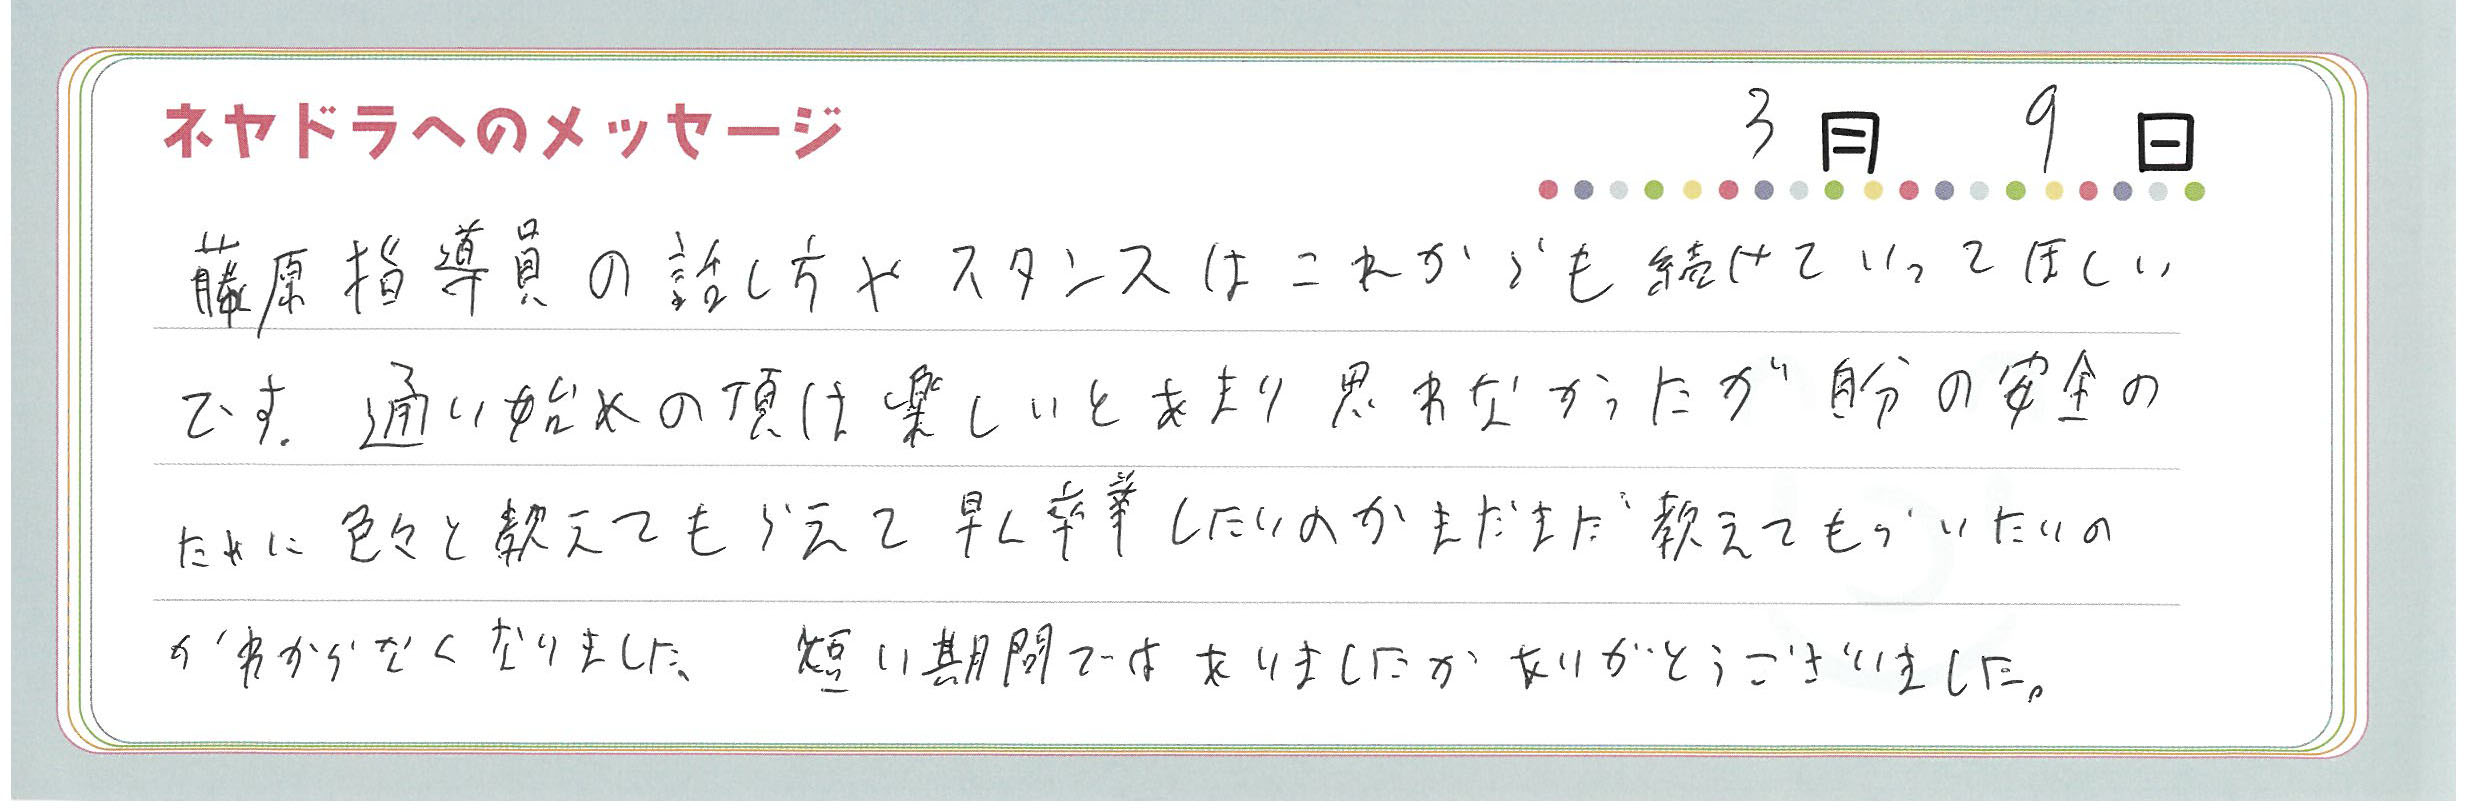 ネヤドラへのメッセージ
3月 9日
藤原指導員の話し方やスタンスはこれからも続けていってほしい
です。通い始めの頃は楽しいとあまり思わなかったが自分の安全の
ために色々と教えてもらえて早く卒業したいのかまだまだ教えてもらいたいの
かわからなくなりました。 短い期間ではありましたがありがとうございました。